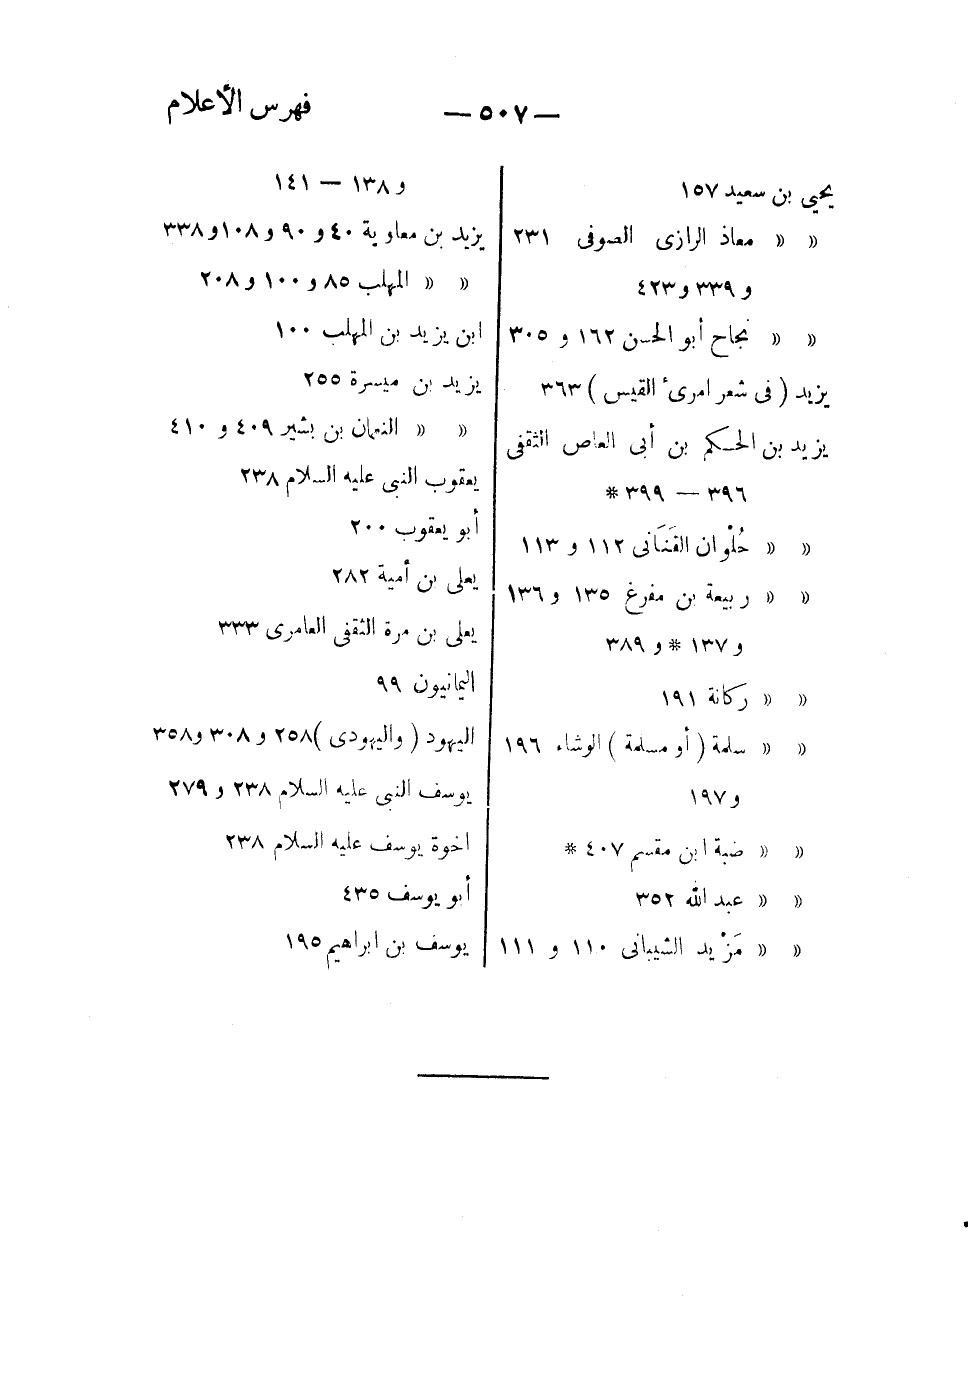 — ٥٠٧ —
فهرس الأعلام
يحيى بن سعيد ١٥٧
« « معاذ الرازى الصوفى ٢٣١
و ٣٣٩ و ٤٢٣
« « نجاح أبو الحسن ١٦٢ و ٣٠٥
يزيد ( فى شعر امرئ القيس ) ٣٦٣
يزيد بن الحكم بن أبى العاص الثقفى
٣٩٦ — ٣٩٩ *
« « حُلْوان القَنَانى ١١٢ و ١١٣
« « ربيعة بن مفرغ ١٣٥ و ١٣٦
و ١٣٧ * و ٣٨٩
« « ركانة ١٩١
« « سلمة ( أو مسلمة ) الوشاء ١٩٦
و ١٩٧
« « ضبة ابن مقسم ٤٠٧ *
« « عبد الله ٣٥٢
« « مَزْيد الشيبانى ١١٠ و ١١١
و ١٣٨ — ١٤١
يزيد بن معاوية ٤٠ و ٩٠ و ١٠٨ و ٣٣٨
« « المهلب ٨٥ و ١٠٠ و ٢٠٨
ابن يزيد بن المهلب ١٠٠
يزيد بن ميسرة ٢٥٥
« « النعمان بن بشير ٤٠٩ و ٤١٠
يعقوب النبى عليه السلام ٢٣٨
أبو يعقوب ٢٠٠
يعلى بن أمية ٢٨٢
يعلى بن مرة الثقفى العامرى ٣٣٣
اليمانيون ٩٩
اليهود ( واليهودى ) ٢٥٨ و ٣٠٨ و ٣٥٨
يوسف النبى عليه السلام ٢٣٨ و ٢٧٩
اخوة يوسف عليه السلام ٢٣٨
أبو يوسف ٤٣٥
يوسف بن ابراهيم ١٩٥